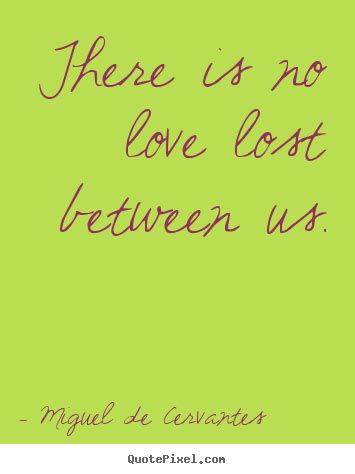 There is no
love lost
between us.
- Miguel de Cervantes
QuotePixel.com